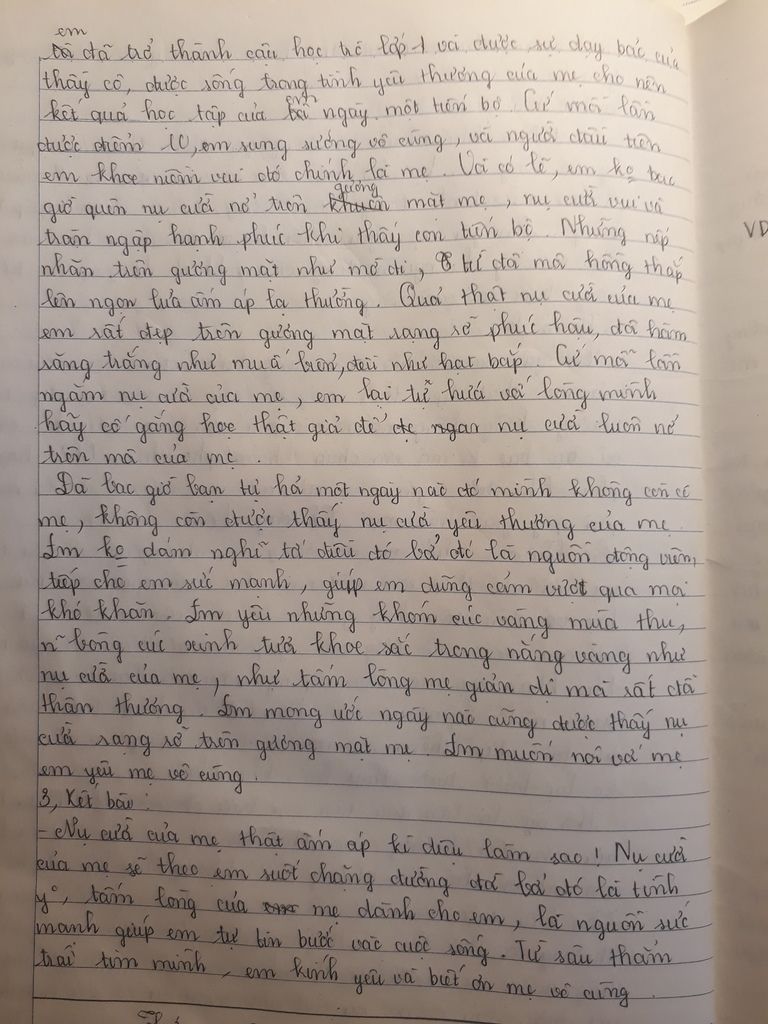 em
đã trở thành cậu học trò lớp 1 với được sự dạy bảo của
thầy cô, được sống trong tình yêu thương của mẹ cho nên
em
kết quả học tập của ngày một tiến bộ. Cứ mỗi lần
được điểm 10, em sung sướng vô cùng, và người đầu tiên
em khoe niềm vui đó chính là mẹ. Và có lẽ, em ko bao
gương
giờ quên nụ cười nở trên khuôn mặt mẹ, nụ cười vui và
tràn ngập hạnh phúc khi thấy con tiến bộ. Những nếp
nhăn trên gương mặt như mờ đi, đôi má hồng thắp
lên ngọn lửa ấm áp lạ thường. Quả thật nụ cười của mẹ
em rất đẹp trên gương mặt rạng rỡ phúc hậu, đôi hàm
răng trắng như muối biển, đều như hạt bắp. Cứ mỗi lần
ngắm nụ cười của mẹ, em lại tự hứa với lòng mình
hãy cố gắng học thật giỏi để nụ cười luôn nở
trên môi của mẹ.
Đã bao giờ bạn tự hỏi một ngày nào đó mình không còn có
mẹ, không còn được thấy nụ cười yêu thương của mẹ.
Em ko dám nghĩ tới điều đó bởi đó là nguồn động viên,
tiếp cho em sức mạnh, giúp em dũng cảm vượt qua mọi
khó khăn. Em yêu những khóm cúc vàng mùa thu,
n~ bông cúc xinh tươi khoe sắc trong nắng vàng như
nụ cười của mẹ, như tấm lòng mẹ giản dị mà rất đỗi
thân thương. Em mong ước ngày nào cũng được thấy nụ
cười rạng rỡ trên gương mặt mẹ. Em muốn nói với mẹ
em yêu mẹ vô cùng.
3, Kết bài:
- Nụ cười của mẹ thật ấm áp kì diệu làm sao! Nụ cười
của mẹ sẽ theo em suốt chặng đường đời bởi đó là tình
y°, tấm lòng của mẹ dành cho em, là nguồn sức
mạnh giúp em tự tin bước vào cuộc sống. Từ sâu thẳm
trái tim mình, em kính yêu và biết ơn mẹ vô cùng.
VD